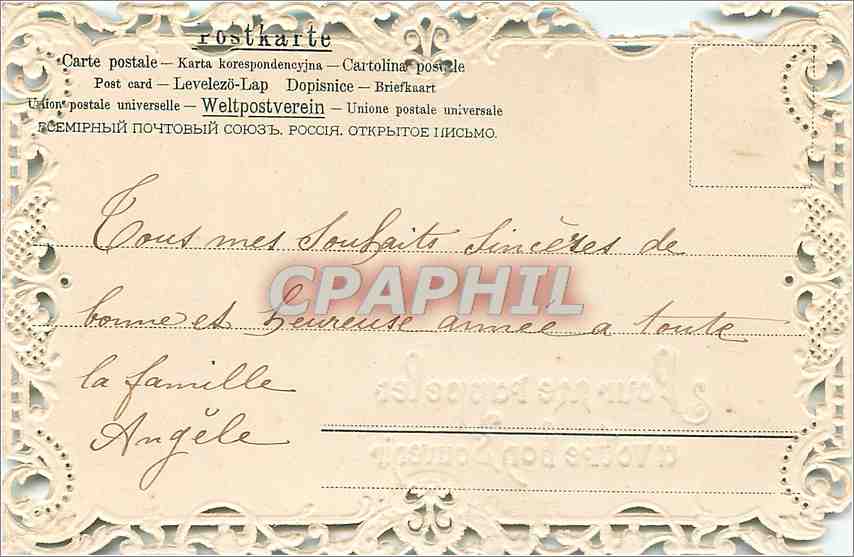 Postkarte
Carte postale — Karta korespondencyjna — Cartolina postale
Post card — Levelezö-Lap Dopisnice — Briefkaart
Union postale universelle — Weltpostverein — Unione postale universale
ВСЕМІРНЫЙ ПОЧТОВЫЙ СОЮЗЪ. РОССІЯ. ОТКРЫТОЕ ПИСЬМО.
Tous mes souhaits sincères de
CPAPHIL
bonne et heureuse année a toute
la famille
Angèle
Pour me rappeler
a votre bon Souvenir